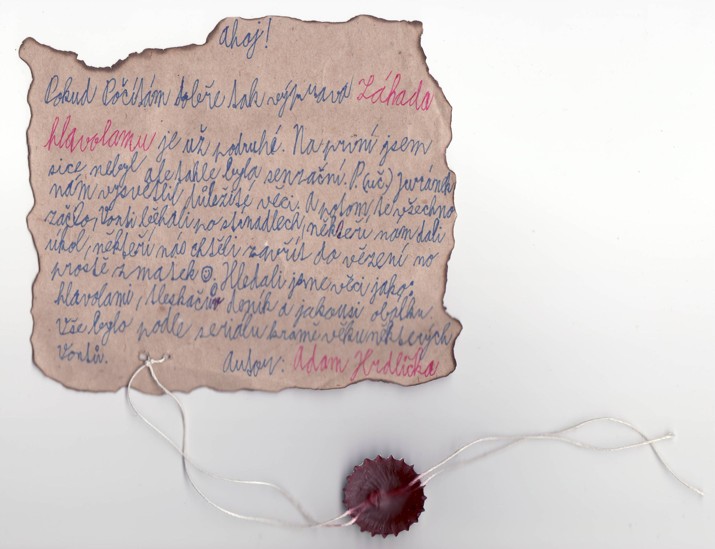 Ahoj!
Pokud Počítám dobře tak výprava Záhada
hlavolamu je už podruhé. Na první jsem
sice nebyl ale tahle byla senzační. P.(uč.) Juránek
nám vysvětlil důležité věci. A potom te všechno
začlo, Vonti běhali po stínadlech, někteří nám dali
úkol, někteří nás chtěli zavřít do vězení no
prostě zmatek ☺. Hledali jsme věci jako:
hlavolami, Tleskačův deník a jakousi obálku.
Vše bylo podle serialu
Vontů. Autor: Adam Hrdlička